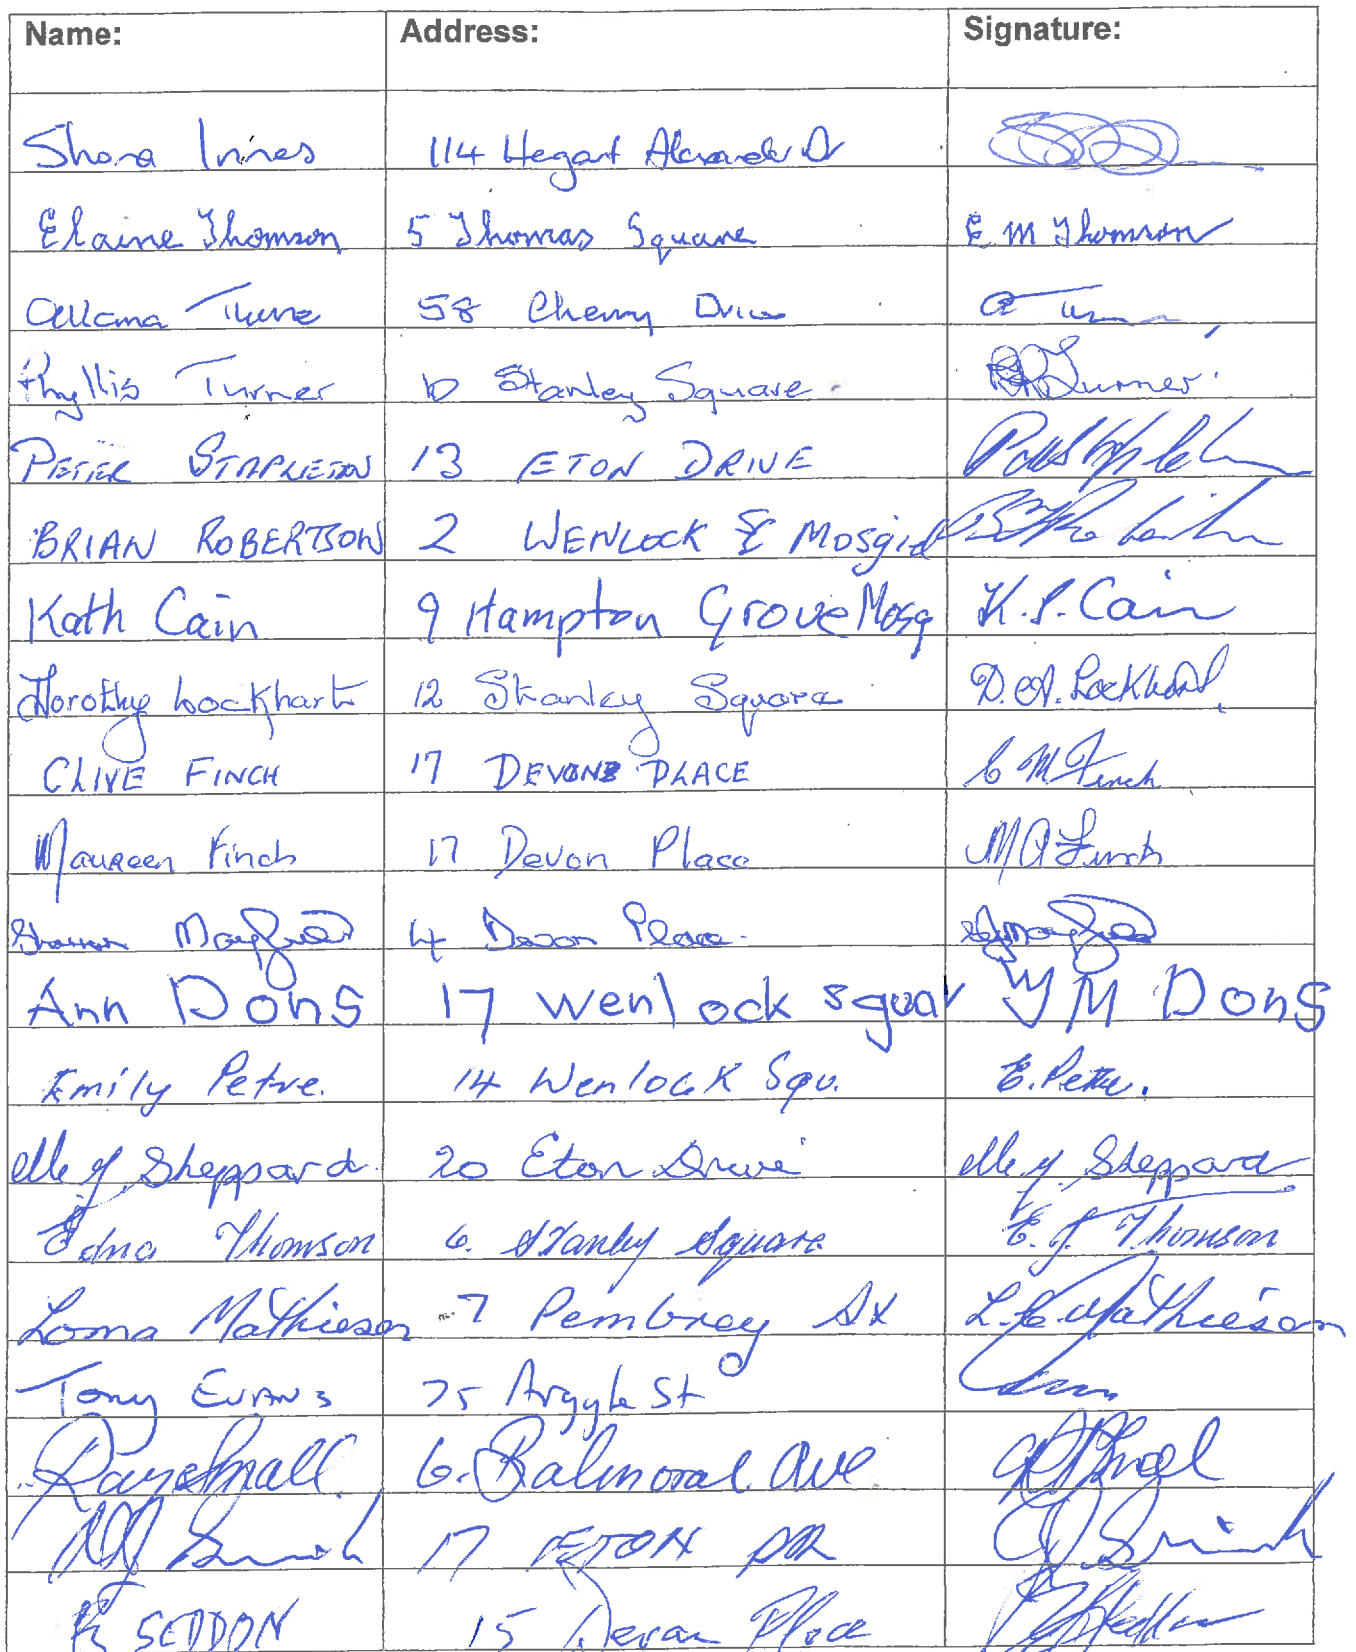 Name: Address: Signature:
Shona Innes 114 Hagart Alexander Dr
Elaine Thomson 5 Thomas Square E M Thomson
58 Cherry Drive
Phyllis Turner 10 Stanley Square Turner
PETER STAPLETON 13 ETON DRIVE
BRIAN ROBERTSON 2 WENLOCK Mosgiel
Kath Cain 9 Hampton Grove Mosg K. S. Cain
Dorothy Lockhart 12 Stanley Square D. A. Lockhart
CLIVE FINCH 17 DEVON PLACE C M Finch
Maureen Finch 17 Devon Place M A Finch
Sharon 4 Devon Place
Ann Dons 17 Wenlock squar M Dons
Emily Petrie. 14 Wenlock Squ. E. Petrie.
Sheppard 20 Eton Drive Sheppard
Edna Thomson 6. Stanley Square E. J. Thomson
Lorna Mathieson 7 Pembrey St L. C. Mathieson
Tony EVANS 75 Argyle St
Small 6. Balmoral Ave
Smith 17 ETON DR Smith
SEDDON 15 Devon Place